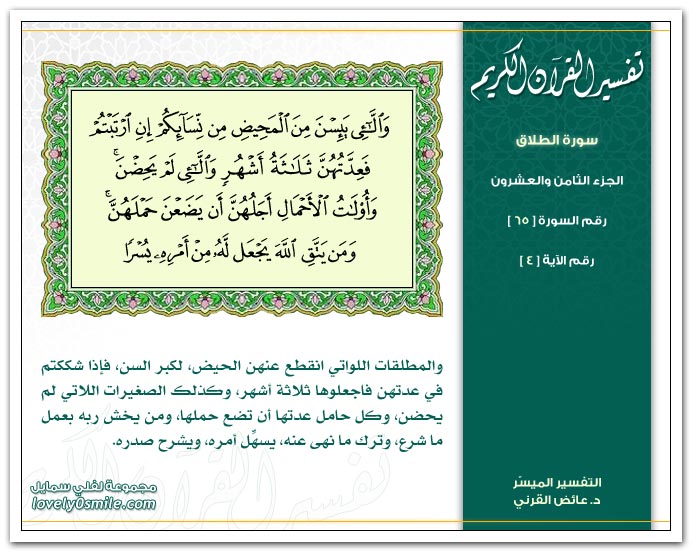 تفسير القرآن الكريم
سورة الطلاق
الجزء الثامن والعشرون
رقم السورة [ ٦٥ ]
رقم الآية [ ٤ ]
وَٱلَّـٰٓـِٔى يَئِسْنَ مِنَ ٱلْمَحِيضِ مِن نِّسَآئِكُمْ إِنِ ٱرْتَبْتُمْ
فَعِدَّتُهُنَّ ثَلَـٰثَةُ أَشْهُرٍ وَٱلَّـٰٓـِٔى لَمْ يَحِضْنَ ۚ
وَأُو۟لَـٰتُ ٱلْأَحْمَالِ أَجَلُهُنَّ أَن يَضَعْنَ حَمْلَهُنَّ ۚ
وَمَن يَتَّقِ ٱللَّهَ يَجْعَل لَّهُۥ مِنْ أَمْرِهِۦ يُسْرًا
والمطلقات اللواتي انقطع عنهن الحيض، لكبر السن، فإذا شككتم
في عدتهن فاجعلوها ثلاثة أشهر، وكذلك الصغيرات اللاتي لم
يحضن، وكل حامل عدتها أن تضع حملها، ومن يخش ربه بعمل
ما شرع، وترك ما نهى عنه، يسهِّل أمره، ويشرح صدره.
التفسير الميسّر
د. عائض القرني
مجموعة لفلي سمايل
lovely0smile.com
تفسير القرآن الكريم